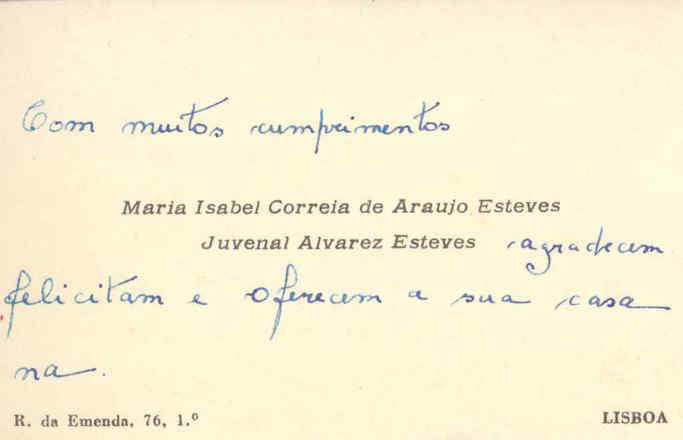 Com muitos cumprimentos
Maria Isabel Correia de Araujo Esteves
Juvenal Alvarez Esteves agradecem
felicitam e oferecem a sua casa
na.
R. da Emenda, 76, 1.º LISBOA